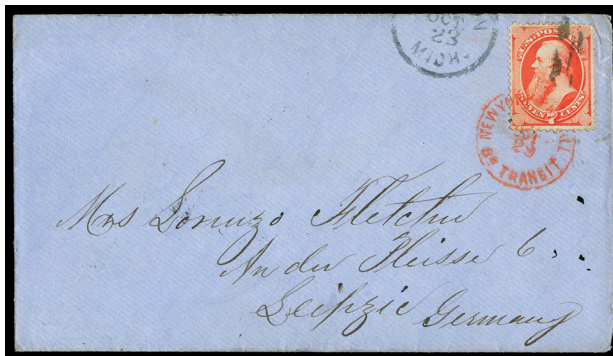 OCT
23
MICH.
U.S. POSTAGE
SEVEN 7 CENTS
NEW Y
TRANSIT
Mrs Lorenzo Fletcher
An der Pleisse 6.
Leipzic Germany